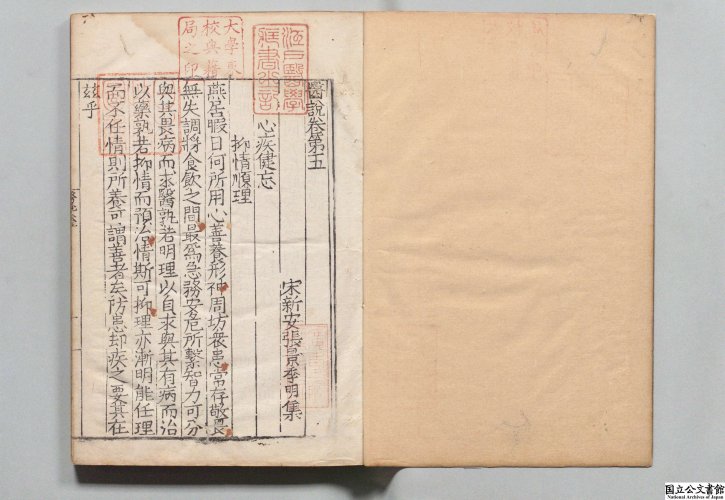 醫說卷第五
宋新安張景季明集
心疾健忘
抑情順理
燕居暇日何所用心善養形神周坊衆患常存敬畏
無失調將食飲之間最爲急務安危所繫智力可分
與其畏病而求醫孰若明理以自求與其有病而治
以藥孰若抑情而預治情斯可抑理亦漸明能任理
而不任情則所養可謂善者矣防患却疾之要其在
玆乎
大學東
校典籍
局之印
国立公文書館
National Archives of Japan